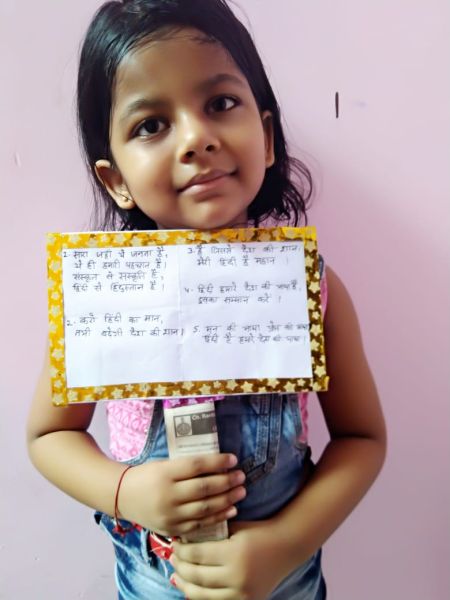 1. सारा जहाँ ये जनता है,
ये ही हमारी पहचान है।
संस्कृत से संस्कृति है,
हिंदी से हिंदुस्तान है।
2. करो हिंदी का मान,
तभी बढ़ेगी देश की शान।
3. है जिससे देश की शान,
मेरी हिंदी है महान ।
4. हिंदी हमारे देश की भाषा है,
इसका सम्मान करे ।
5. मन की भाषा प्रेम की भाषा
हिंदी है हमारे देश की भाषा।